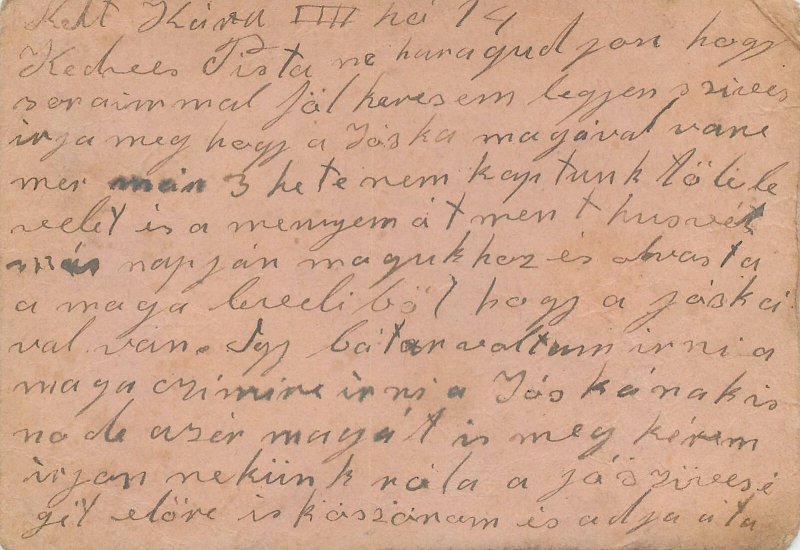 Kelt Kára IIII hó 14
Kedves Pista ne haragudjon hogy
soraimmal föl keresem legyen szives
irja meg hogy a Jóska magával vane
mer már 3 hete nem kaptunk tölile
velet is a menyem át ment husvét
más napján magukhoz és olvasta
a maga leveliböl hogy a jóská
val van. Igy bátor voltam irni a
maga czimire irni a Jóskánakis
no de azér magát is meg kérem
irjan nekünk róla a jó szivesi
git előre is köszönöm és adja áta